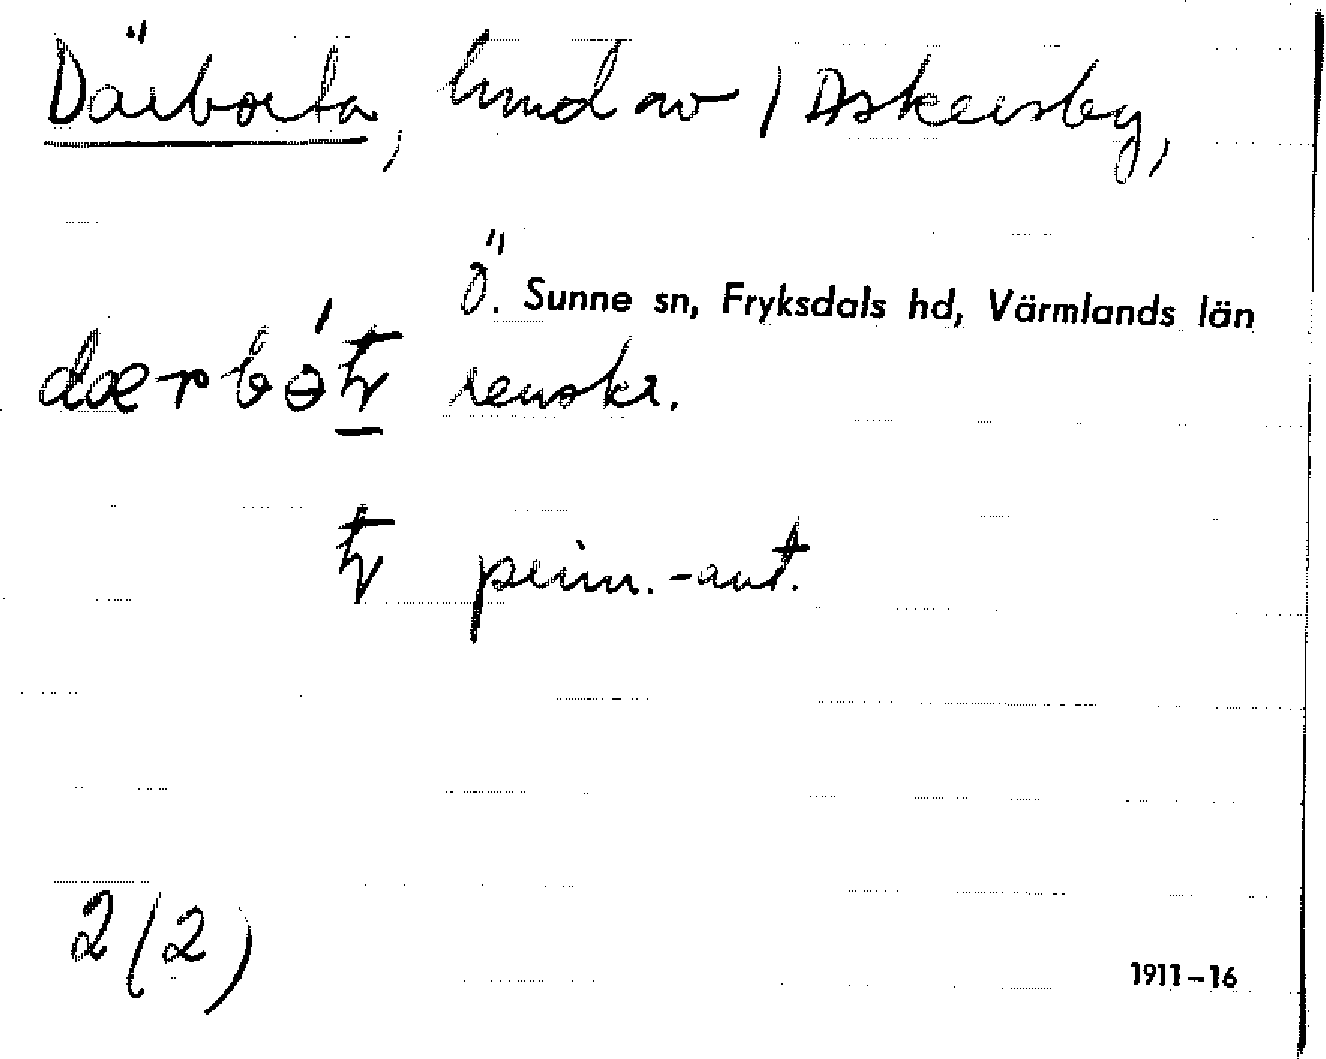 Därborta, hmd av 1 Askersby,
Ö. Sunne sn, Fryksdals hd, Värmlands län
renskr.
prim.-ant.
2(2)
1911-16